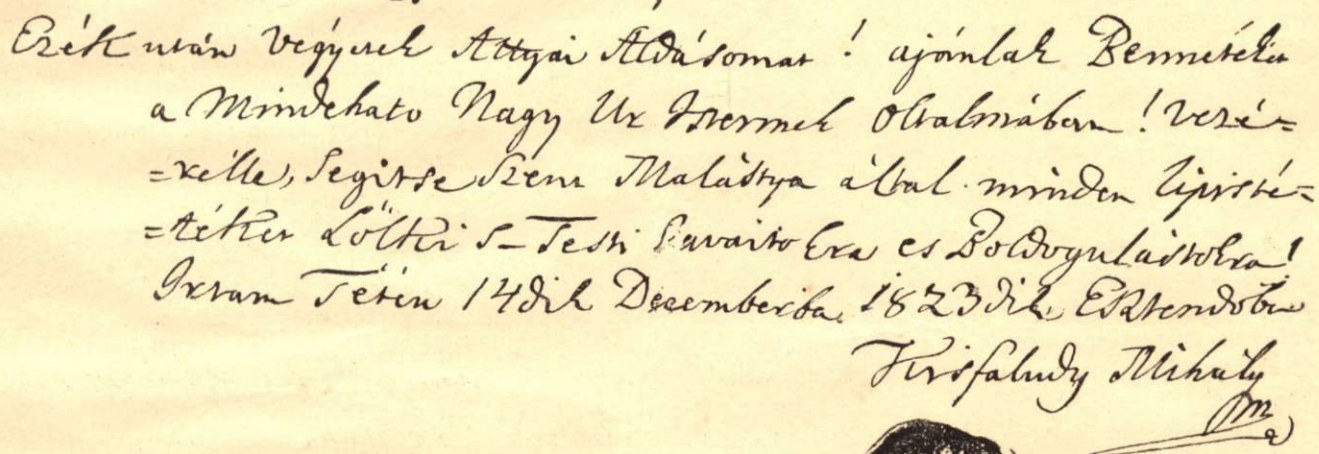 Ezék után végyetek Attyai Aldásomat! ajánlak Bennetéket
a Mindehato Nagy Ur Istennek Oltalmában! vezé=
=rélle, Segitse Szent Malástya által minden lipisté=
=téket Lölki s-Testi Javaitokra es Boldogulástokra!
Irtam Tétén 14dik Decemberbe, 1823dik, Esztendőbe
Kisfaludy Mihály